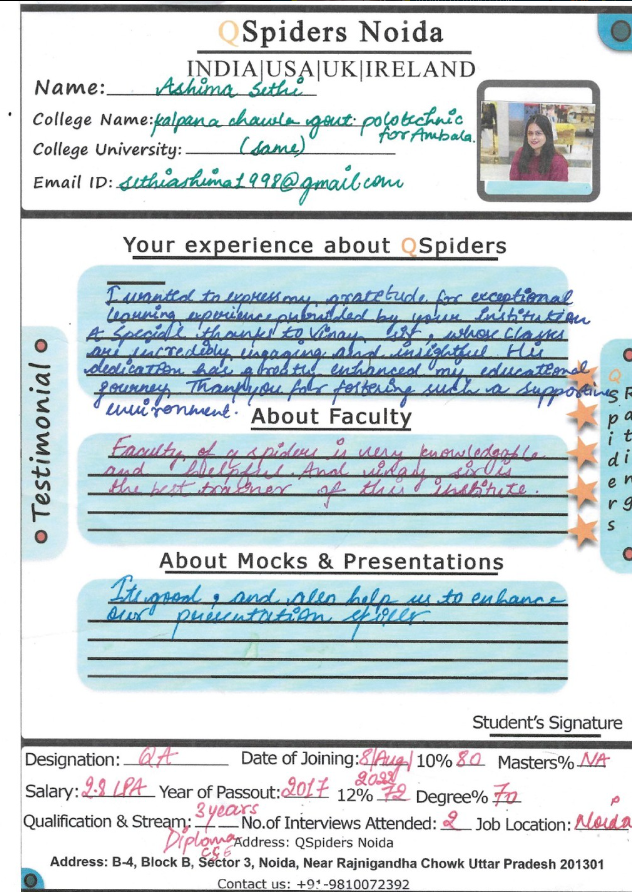 QSpiders Noida
INDIA|USA|UK|IRELAND
Name: Ashima Sethi
College Name: kalpana chawla govt. polotechnic
for Ambala.
College University: (same)
Email ID: sethiashima1998@gmail.com
Your experience about QSpiders
I wanted to express my gratitude for exceptional
learning experience provided by your institution
A special thanks to Vinay sir, whose classes
are incredibly engaging and insightful. His
dedication has greatly enhanced my educational
journey. Thankyou for fostering such a supportive
environment.
About Faculty
Faculty of q spiders is very knowledgeable
and helpful. And vinay sir is
the best trainer of this institute.
About Mocks & Presentations
Its good, and also help us to enhance
our presentation skills.
Testimonial
QSpiders
Ratings
Student's Signature
Designation: QA Date of Joining: 8/Aug/2022 10% 80 Masters% NA
Salary: 2.8 LPA Year of Passout: 2017 12% 72 Degree% 70
Qualification & Stream: 3 years Diploma CSE No.of Interviews Attended: 2 Job Location: Noida
Address: QSpiders Noida
Address: B-4, Block B, Sector 3, Noida, Near Rajnigandha Chowk Uttar Pradesh 201301
Contact us: +91-9810072392